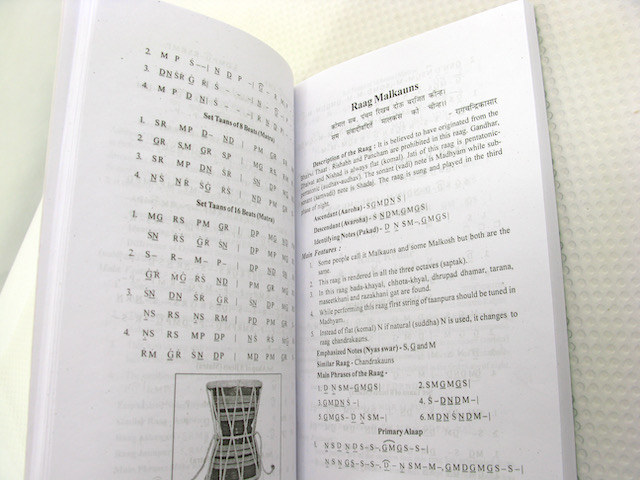 2. M P Ṡ – – | N D P – |
3. D N Ṡ R G R Ṡ –
4. M P D N Ṡ | Ṡ –
Set Taans of 8 Beats (Matra)
1. SR MP D– ND | PM GR
2. GR SM GR SP | MG RS
3. SR MP DN ṠR | ṠN DP
4. NṠ NR ṠG RṠ | ND PM GR
Set Taans of 16 Beats (Matra)
1. MG RS PM GR | DP MG
ṠN RṠ GR ṠN | DP
2. S– R– M– P– | DP
GR MG RS ND | PM GR
3. ṠN DN ṠR GR | ṠN DP MG
NS RS NS RM | PD PM GR
4. NS RS MP DP | NṠ
RM GR ṠN DP | MD PM GR
Raag Malkauns
कोमल सब, पंचम रिखब दोऊ बरजित कीन्ह।
सम संवादीवादितें मालकंस को चीन्ह।। - रागचन्द्रिकासार
Description of the Raag : It is believed to have originated from the
Bhairvi Thaat. Rishabh and Pancham are prohibited in this raag. Gandhar,
Dhaivat and Nishad is always flat (komal). Jati of this raag is pentatonic-
pentatonic (audhav-audhav). The sonant (vadi) note is Madhyam while sub-
sonant (samvadi) note is Shadaj. The raag is sung and played in the third
phase of night.
Ascendant (Aaroha) - S G M D N Ṡ |
Descendant (Avaroha) - Ṡ N D M, G M G S |
Identifying Notes (Pakad) - D N S M –, G M G S |
Main Features :
1. Some people call it Malkauns and some Malkosh but both are the
same.
2. This raag is rendered in all the three octaves (saptak).
3. In this raag bada-khayal, chhota-khyal, dhrupad dhamar, tarana,
maseetkhani and razakhani gat are found.
4. While performing this raag first string of taanpura should be tuned in
Madhyam.
5. Instead of flat (komal) N if natural (suddha) N is used, it changes to
raag chandrakauns.
Emphasized Notes (Nyas swar) - S, G and M
Similar Raag - Chandrakauns
Main Phrases of the Raag -
1. D N S M – G M G S | 2. S M G M G S |
3. G M D N Ṡ – | 4. Ṡ – D N D M – |
5. G M G S – D N S M – | 6. M D N Ṡ N D M – |
Primary Alaap
1. N S D N D S – S –, G M G S – S – |
N S N G S – S –, D – N S M – M –, G M D G M G S – S – |